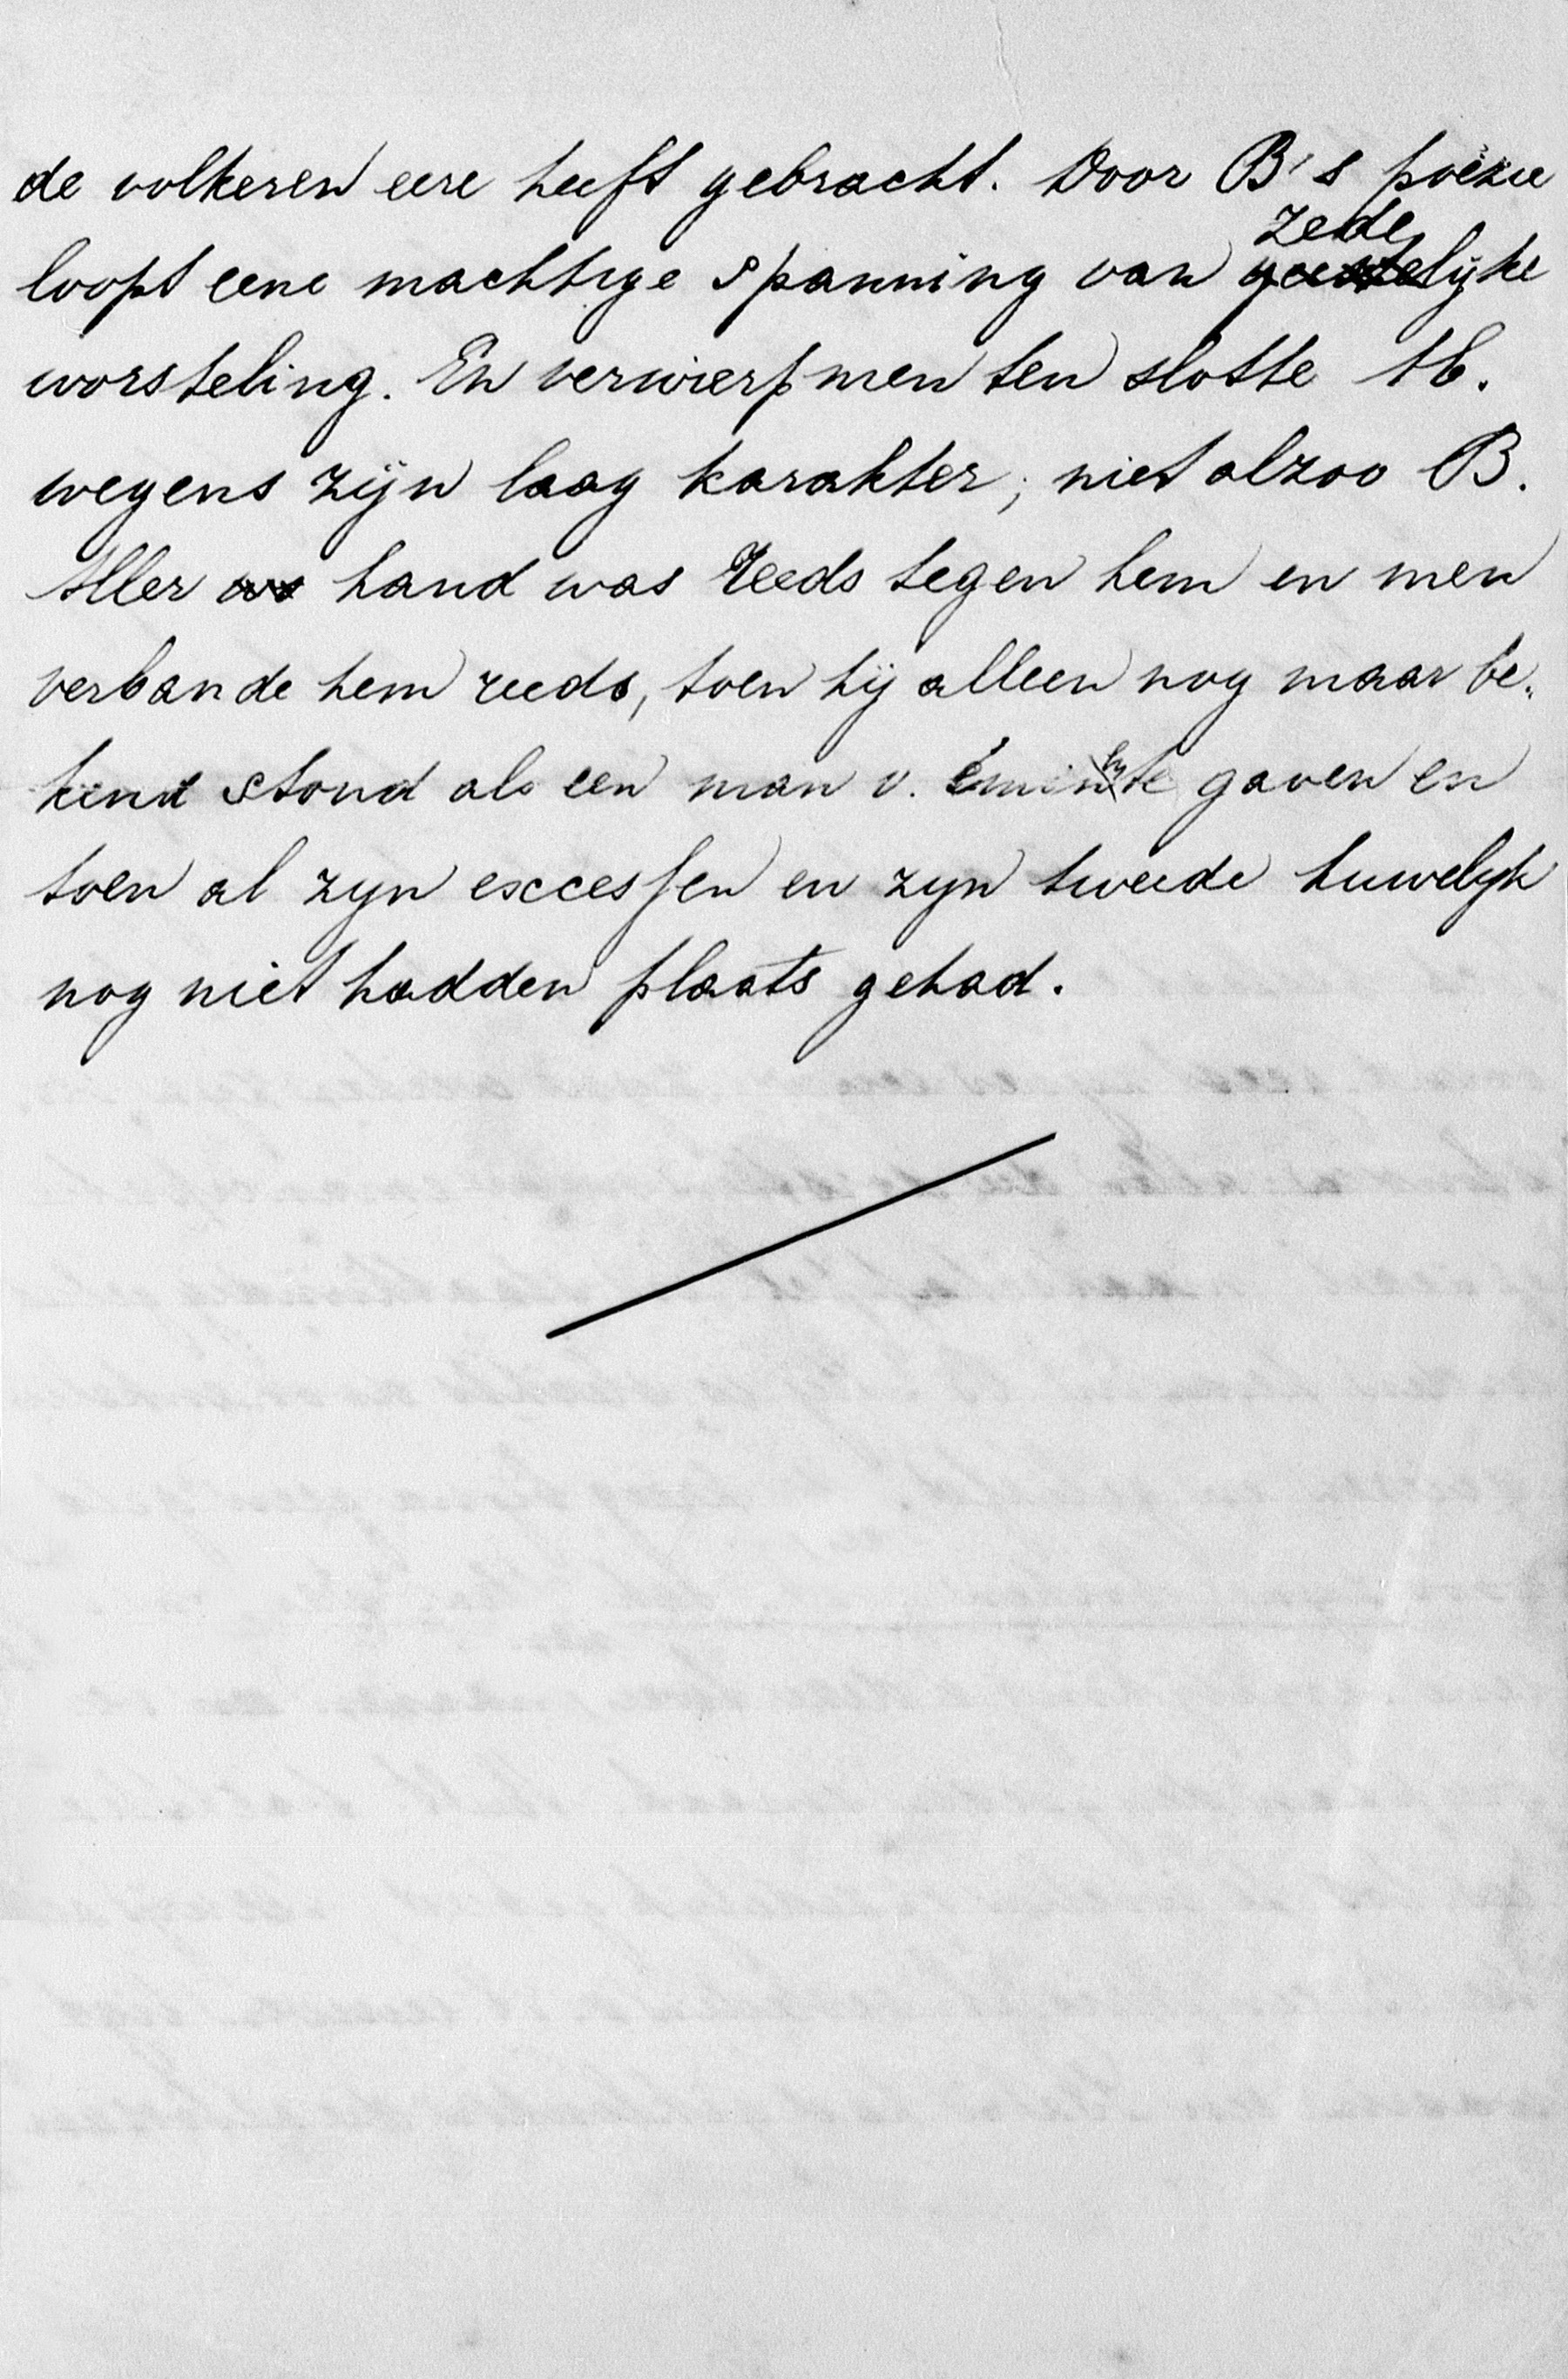 de volkeren eere heeft gebracht. Door B's poëzie
loopt eene machtige spanning van zedelijke
worsteling. En verwierp men ten slotte H.
wegens zijn laag karakter; niet alzoo B.
Aller hand was reeds tegen hem en men
verbande hem reeds, toen hij alleen nog maar be-
kend stond als een man v. éminente gaven en
toen al zyn excessen en zyn tweede huwelyk
nog niet hadden plaats gehad.